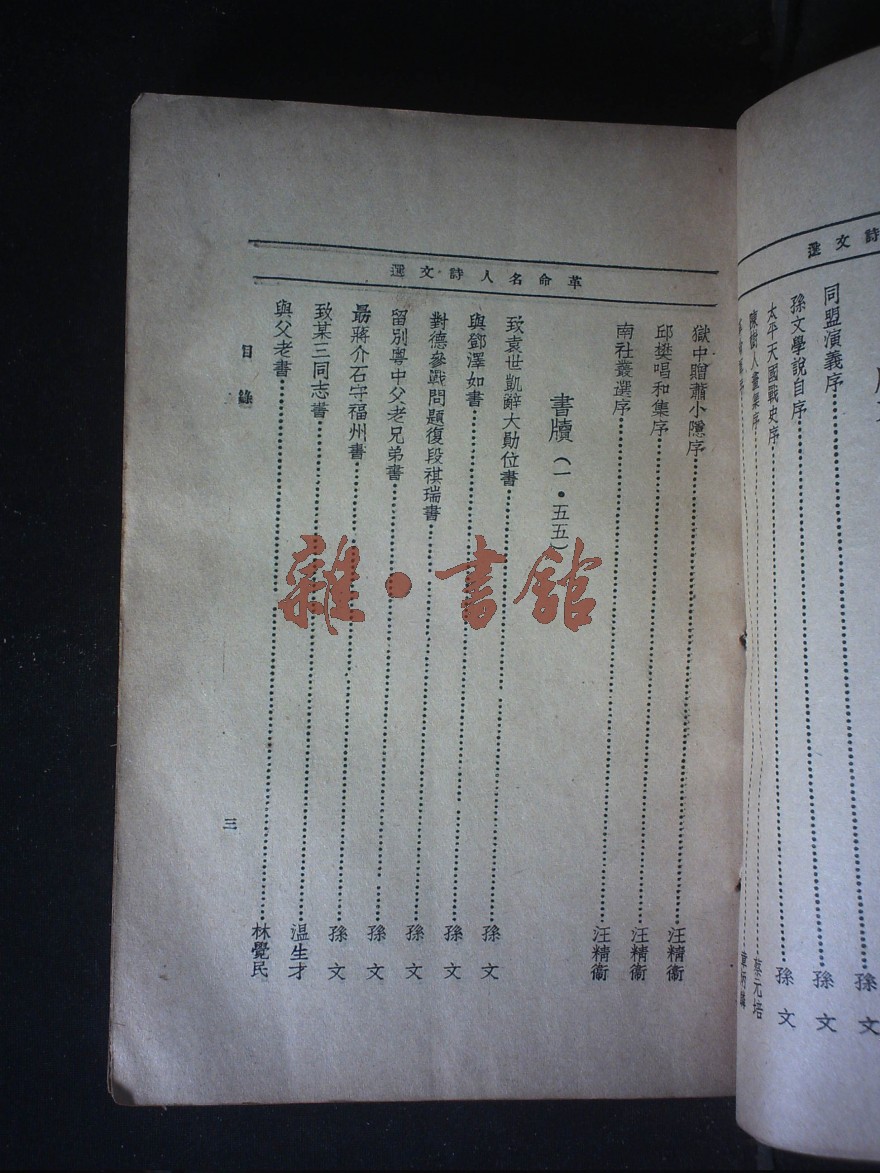 詩文選
同盟演義序 孫文
孫文學說自序 孫文
太平天國戰史序 孫文
陳樹人畫集序 蔡元培
革命名人詩文選
獄中贈蕭小隱序 汪精衞
邱樊唱和集序 汪精衞
南社叢選序 汪精衞
書牘(一·五五)
致袁世凱辭大勛位書 孫文
與鄧澤如書 孫文
對德參戰問題復段祺瑞書 孫文
留別粵中父老兄弟書 孫文
勗蔣介石守福州書 孫文
致某三同志書 温生才
與父老書 林覺民
目錄
三
雜·書館